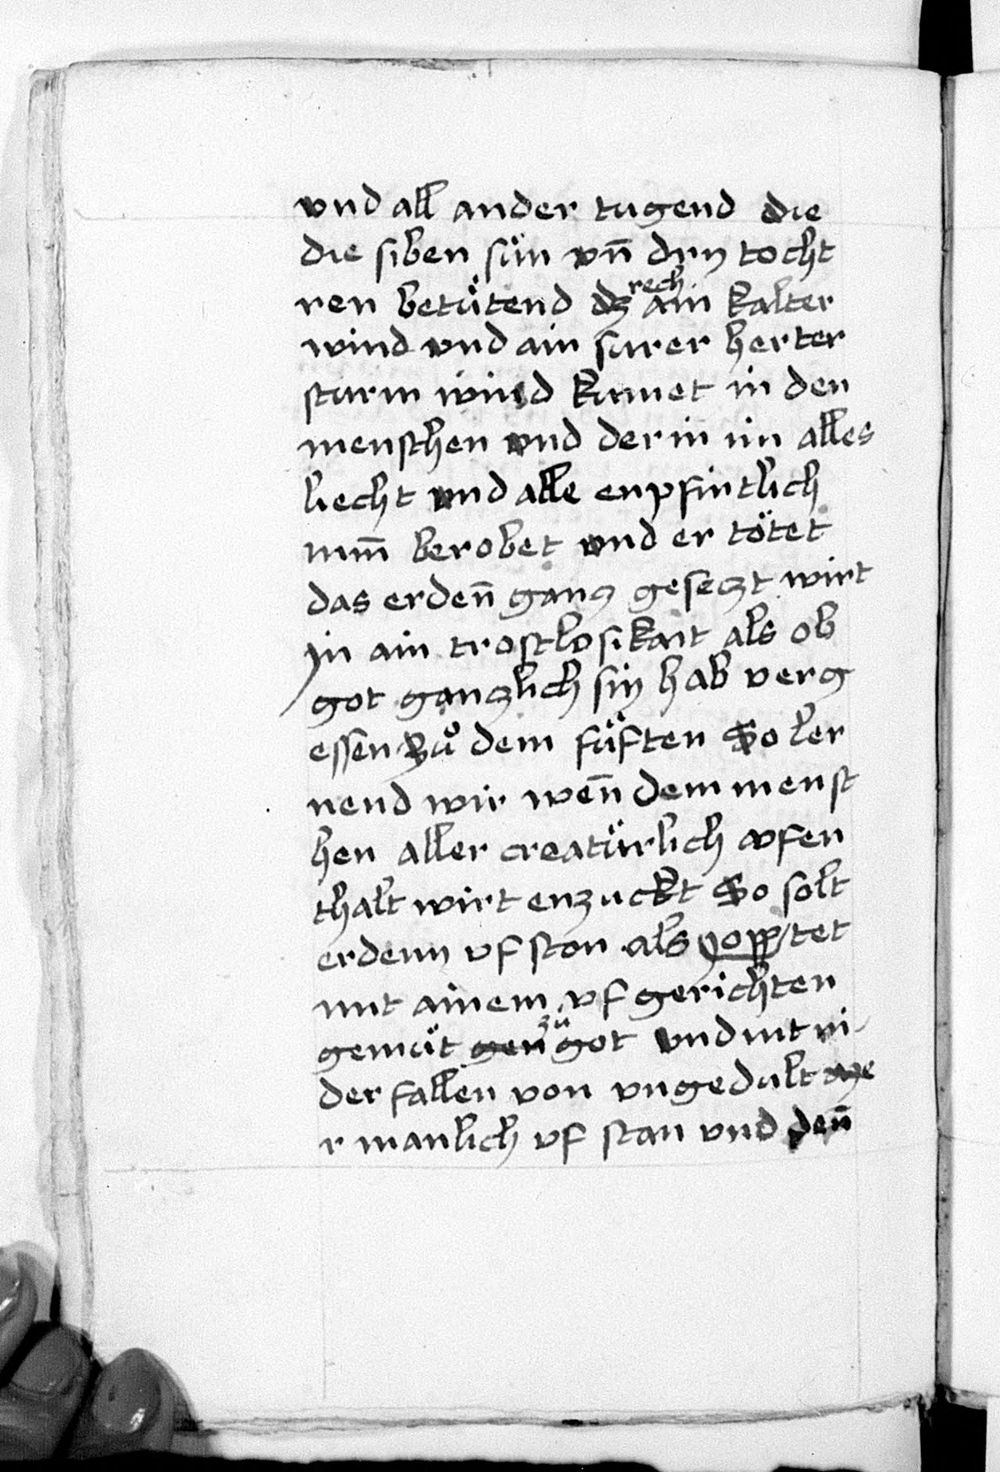 vnd all ander tugend die
die siben sün vn̄ dry tocht
ren betütend dz rech ain kalter
wind vnd ain surer herter
sturm wind kumet in den
menschen vnd der in im alles
liecht vnd alle enpfintlich
berobet vnd er tötet
das er denn̄ gancz geseczt wirt
in ain trostlosikait als ob
got ganczlich sin hab verg
essen Zů dem füften So ler
nend wir wen̄ dem menst
hen aller creatürlich vfen
thalt wirt enzuckt So solt
er denn vf ston als Jop tet
mit ainem vf gerichten
gemüt gen zů got vnd nit ni
der fallen von vngedult
r manlich vf stan vnd den̄